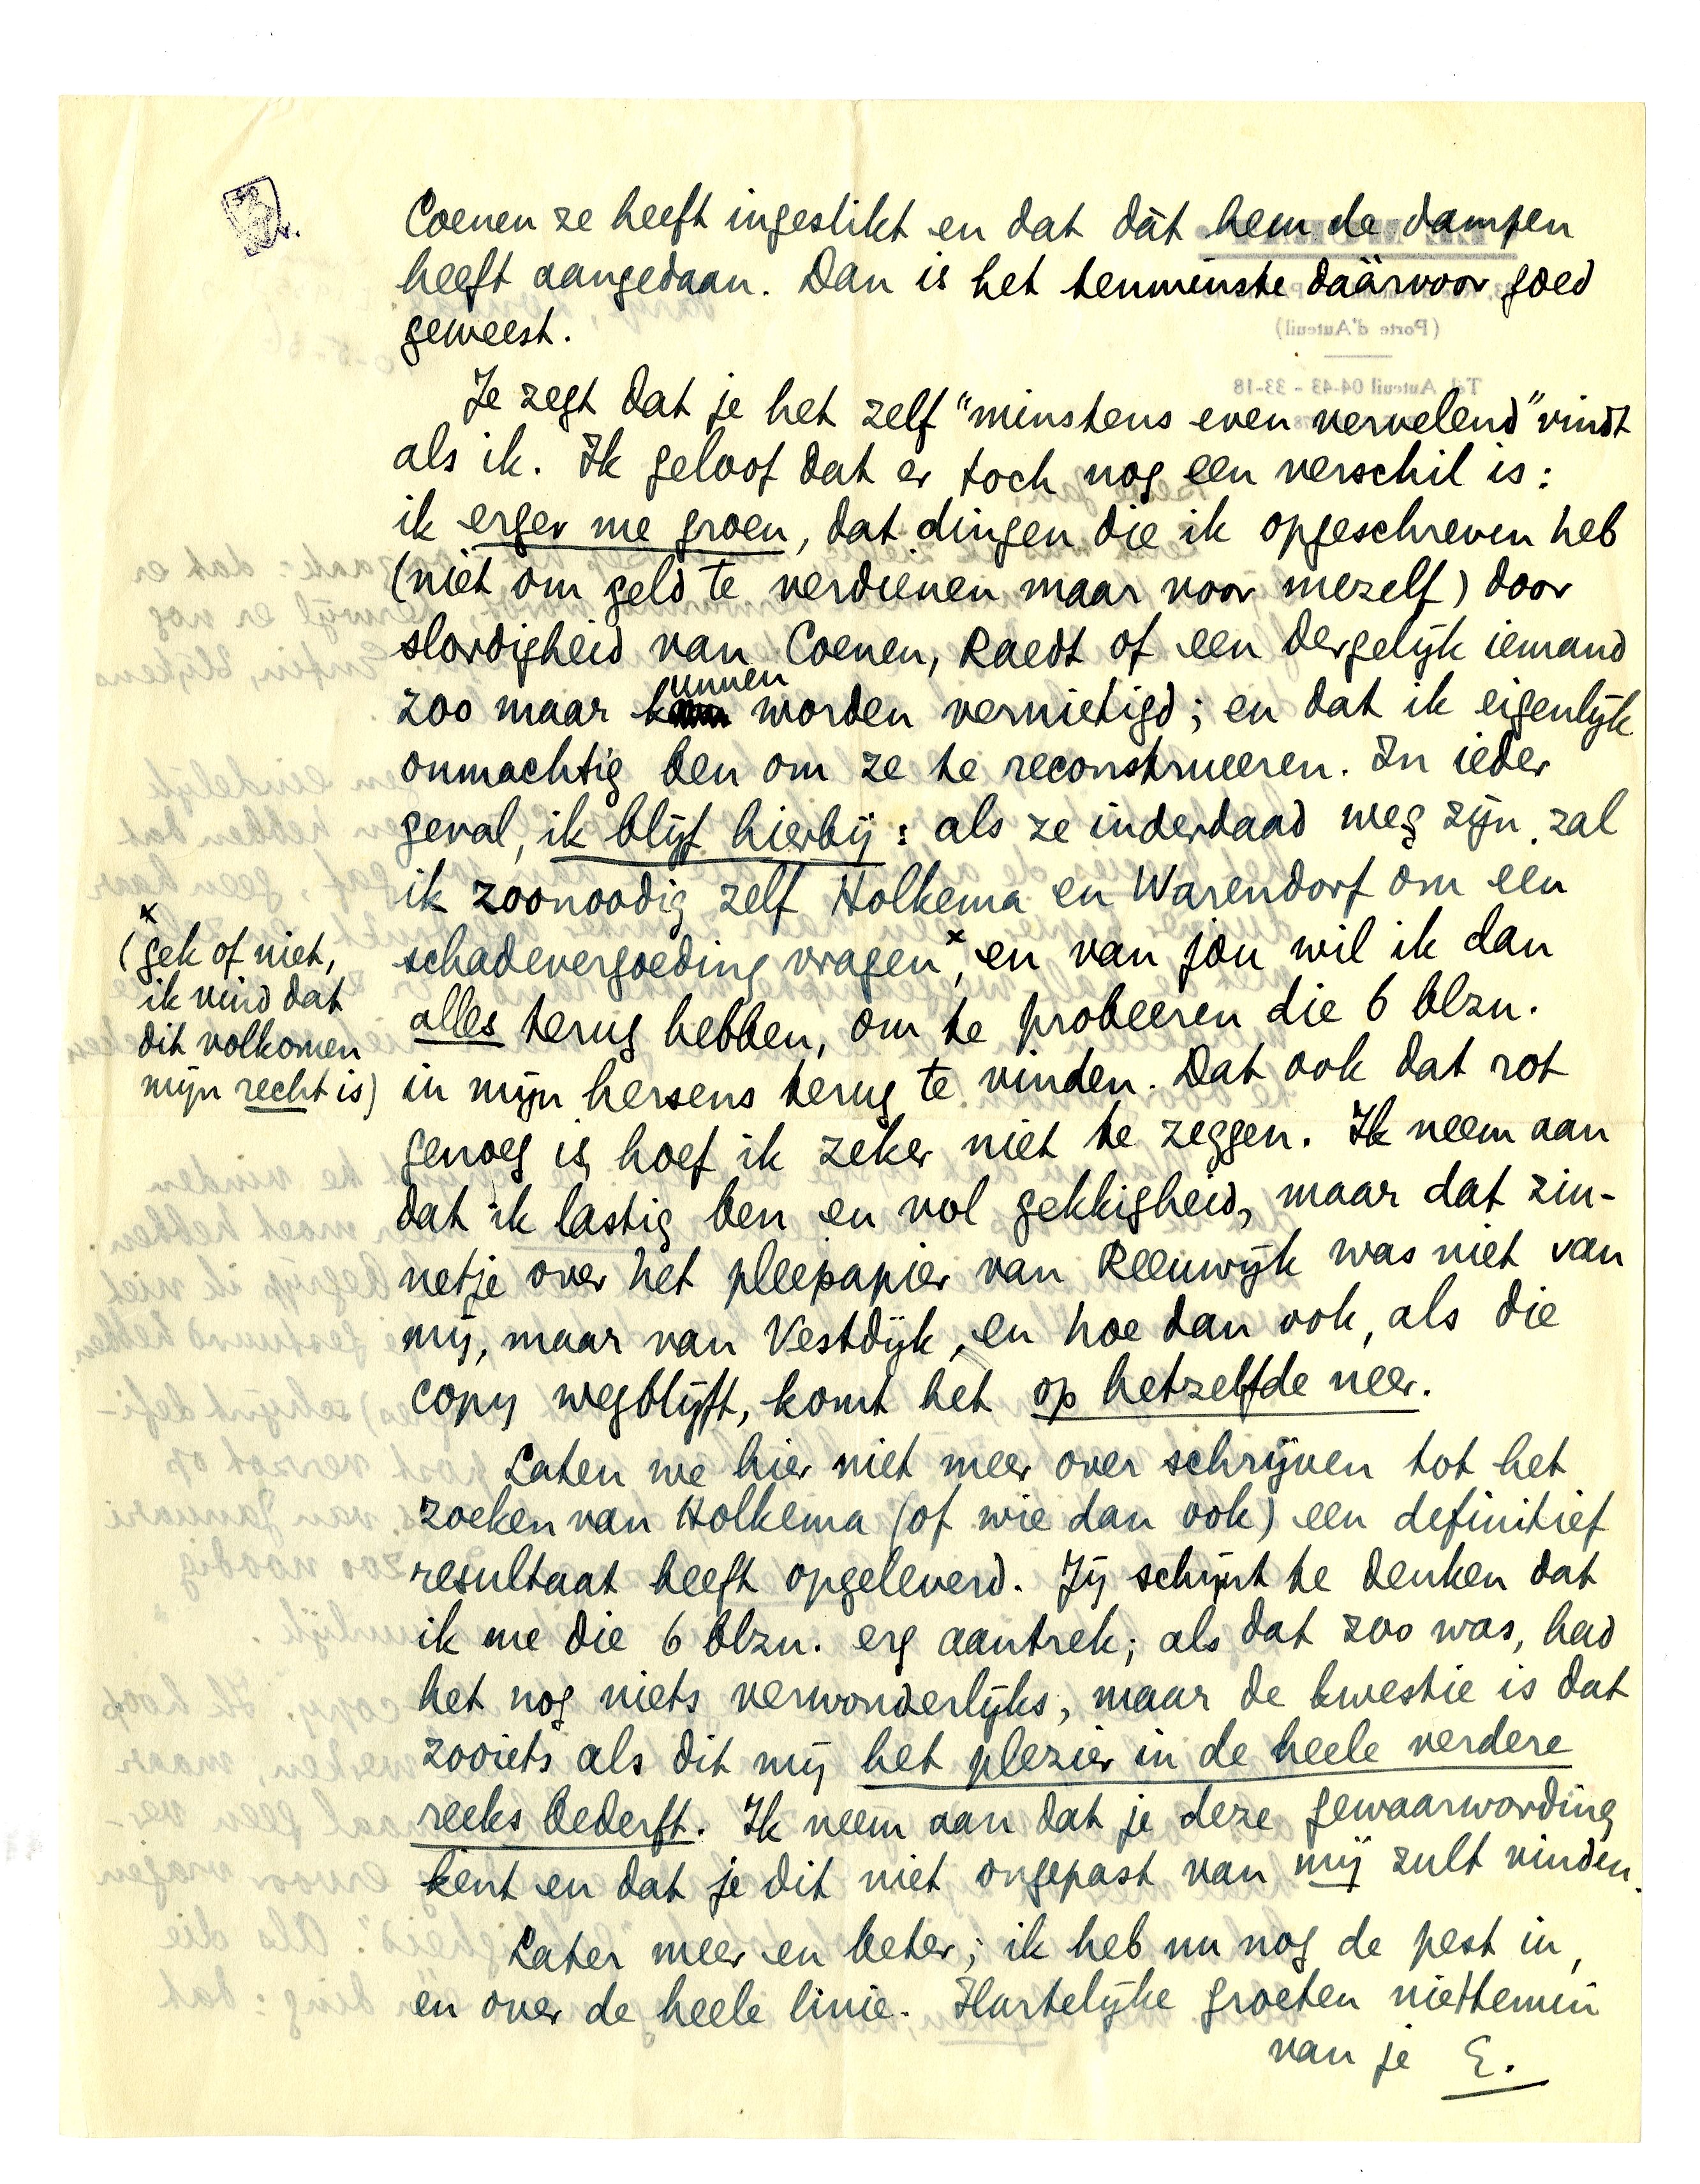 Coenen ze heeft ingeslikt en dat dàt hem de dampen
heeft aangedaan. Dan is het tenminste daàrvoor goed
geweest.
Je zegt dat je het zelf "minstens even vervelend" vindt
als ik. Ik geloof dat er toch nog een verschil is:
ik erger me groen, dat dingen die ik opgeschreven heb
(niet om geld te verdienen maar voor mezelf) door
slordigheid van Coenen, Raedt of een dergelijk iemand
zoo maar kunnen worden vernietigd; en dat ik eigenlijk
onmachtig ben om ze te reconstrueeren. In ieder
geval, ik blijf hierbij: als ze inderdaad weg zijn, zal
ik zoonoodig zelf Holkema en Warendorf om een
schadevergoeding vragen x, en van jou wil ik dan
alles terug hebben, om te probeeren die 6 blzn.
in mijn hersens terug te vinden. Dat ook dat rot
genoeg is, hoef ik zeker niet te zeggen. Ik neem aan
dat ik lastig ben en vol gekkigheid, maar dat zin-
netje over het pleepapier van Reeuwijk was niet van
mij, maar van Vestdijk, en hoe dan ook, als die
copy wegblijft, komt het op hetzelfde neer.
Laten we hier niet meer over schrijven tot het
zoeken van Holkema (of wie dan ook) een definitief
resultaat heeft opgeleverd. Jij schijnt te denken dat
ik me die 6 blzn. erg aantrek; als dat zoo was, had
het nog niets verwonderlijks, maar de kwestie is dat
zooiets als dit mij het plezier in de heele verdere
reeks bederft. Ik neem aan dat je deze gewaarwording
kent en dat je dit niet ongepast van mij zult vinden.
Later meer en beter; ik heb nu nog de pest in,
en over de heele linie. Hartelijke groeten niettemin
van je E.
x
(gek of niet,
ik vind dat
dit volkomen
mijn recht is)
(Porte d'Auteuil)
Tél. Auteuil 04-43 - 33-18